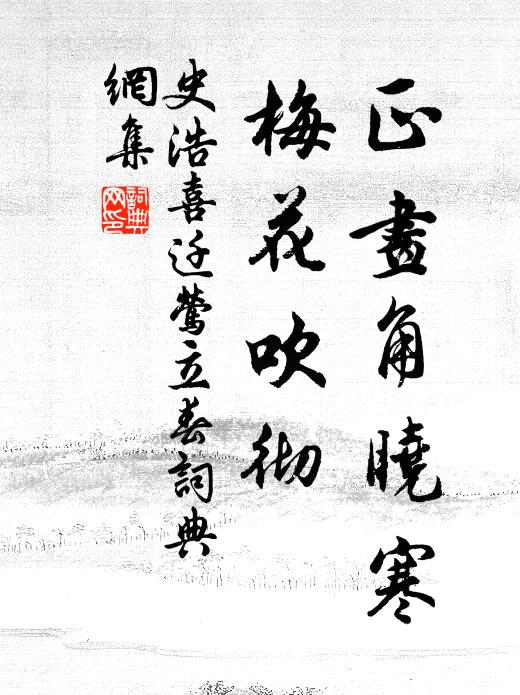 正畫角曉寒
梅花吹彻
史浩喜迁鶯立春詞典
網集
詞典
网印